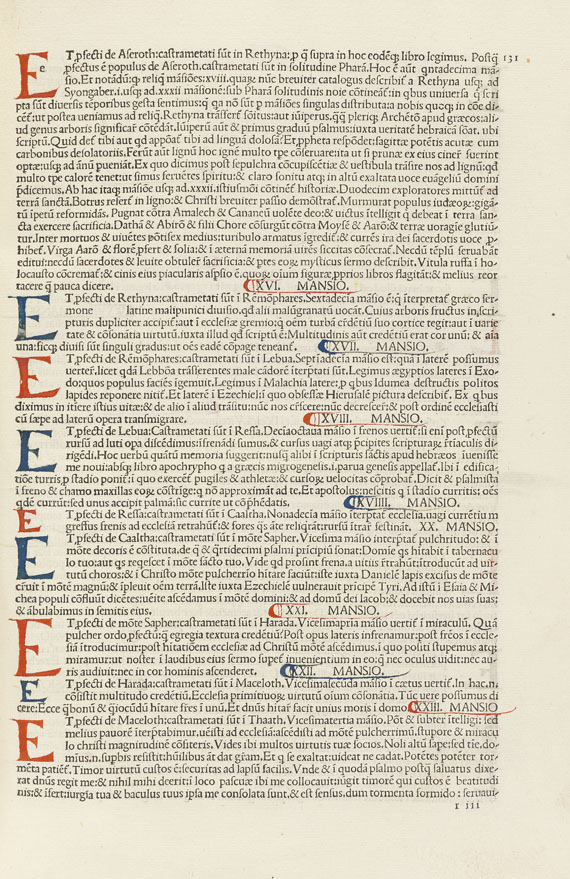 E T,pfecti de Aseroth:castrametati sūt in Rethyna:ꝑ q̄ supra in hoc codẽq; libro legimus. Postq̄ 131
e ,pfectus ē populus de Aseroth.castrametati sūt in solitudine Pharā. Hoc ē aūt qntadecima mā-
sio.Et notādū:q; reliq̄ māsiões:xviii.quaꝝ nūc breuiter catalogus describit̃ a Rethyna usq; ad
Syongaber.i.usq; ad.xxxii māsionē:sub Pharā solitudinis noie cōtineāt̃:in qbus uniuersa q̄ scri
pta sūt diuersis tēporibus gesta sentimus:q̄ qa nō sūt p māsiões singulas distributa:a nobis quoq; in cōe di-
cēt̃:ut postea ueniamus ad reliq̄.Rethyna trāsfert̃ sōitus:aut iuiperus,qq̄ pleriq; Archētō apud græcos:ali-
ud genus arboris significar̃ cōtēdāt.Iuiperū aūt & primus graduū psalmus:iuxta ueritatē hebraicā sōat. ubi
scriptū.Quid det̃ tibi aut qd appōat̃ tibi ad linguā dolosā?Et,ppheta respōdet:sagittæ potētis acutæ cum
carbonibus desolatoriis.Ferūt aūt lignū hoc ignē multo tpe cōseruare:ita ut si prunæ ex eius ciner̃ fuerint
optæ:usq; ad ānū pueniāt.Ex quo dicimus post sepulchra cōcupiscētiæ & uestibula trāsire nos ad lignū:qd
multo tpe calorē tenet:ut simus feruētes spiritu:& claro sonitu atq; in altū exaltata uoce euāgeliū domini
p̄dicemus.Ab hac itaq; māsiōe usq; ad.xxxii.istiusmōi cōtinēt̃ historiæ.Duodecim exploratores mittūt̃ ad
terrā sanctā.Botrus relert̃ in ligno:& Christi breuiter passio demōstrat̃.Murmurat populus iudæoꝝ:gigā-
tū ipetū reformidās. Pugnat cōtra Amalech & Cananeū uolēte deo:& uictus itelligit q̄ debeat i terra san-
cta exercere sacrificia.Dathā & Abirō & filii Chore cōsurgūt cōtra Moysē & Aarō:& terræ uoragīe glutiū-
tur.Inter mortuos & uiuētes pōtifex medius:turibulo armatus igredit̃:& currēs ira dei sacerdotis uoce ꝓ-
hibet̃.Virga Aarō & florē,pfert & folia:& i æternā memoriā uirēs siccitas cōsecrat̃.Necdū tēplū seruabāt
editui:necdū sacerdotes & leuitæ obtulēt̃ sacrificia:& ptes eoꝝ mysticus sermo describit. Vitula ruffa i ho-
locausto cōcremat̃:& cinis eius piacularis aspsio ē.quoꝝ oīum figuræ,pprios libros flagitāt:& melius reor
tacere q̄ pauca dicere. XVI. MANSIO.
E T,pfecti de Rethyna:castrametati sūt i Remōphares.Sextadecia māsio ē:q̄ iterpretat̃ græco ser-
mone latine malipunici diuisio.qd alii malūgranatū uocāt.Cuius arboris fructus in,scri-
pturis dupliciter accipit̃:aut i ecclesiæ gremio:q̄ oem turbā crēdētiū suo cortice tegit:aut i uarie
tate & cōsonātia uirtutū.iuxta illud qd scriptū ē:Multitudinis aūt crēdētiū erat cor unū:& aīa
una:sicq; diuisi sūt singuli gradus:ut oēs eadē cōpage teneant̃. XVII. MANSIO.
E T,pfecti de Remōphares:castrametati sūt i Lebua.Septiādecia māsio est:quā i laterē possumus
uerter̃.licet qdā Lebbōa trāsferentes male cādorē iterptati sūt.Legimus ægyptios lateres i Exo-
do:quos populus faciēs igemuit.Legimus i Malachia latere:ꝑ qbus Idumea destructis politos
lapides reponere nitit̃.Et laterē i Ezechiel:i quo obsessæ Hierusalē pictura describit̃. Ex qbus
diximus in itiere istius uitæ:& de alio i aliud trāsitu:nūc nos cr̃scere:nūc decrescer̃:& post ordinē ecclesiasti
cū sæpe ad laterū opera transmigrare. XVIII. MANSIO.
E T,pfecti de Lebua:Castrametati sūt i Ressa.Deciaoctaua māsio i frenos uertit̃:si eni post,pfectū
rursū ad luti opa discēdimus:i frenādi sumus.& cursus uagi atq; p̄cipites scripturaꝝ r̃tiaculis di-
rigēdi.Hoc uerbū quātū memoria suggerit:nusq̄ alibi i scripturis sāctis apud hebræos iuenisse
me noui:absq; libro apochrypho q a græcis migrogenesis,i.parua genesis appellat̃.Ibi i edifica-
tiōe turris,p stadio ponit̃:i quo exercēt̃ pugiles & athletæ:& cursoꝝ uelocitas cōprobat̃.Dicit & psalmista
i freno & chamo maxillas eoꝝ cōstrige:q nō approximāt ad te.Et apostolus:nescitis q i stadio curritis:oēs
qdē currūt:sed unus accipit palmā:sic currite ut cōp̄hēdatis. XVIIII. MANSIO.
E T,pfecti de Ressa:castrametati sūt i Caaltha.Nouadecia māsio iterptat̃ ecclesia.uagi currētiū m
gressus frenis ad ecclesiā retrahūt̃:& fores qs āte reliqrāt:rursū itrar̃ festinat. XX. MANSIO.
E T,pfecti de Caaltha:castrametati sūt i mōte Sapher.Vicesima māsio interptat̃ pulchritudo: & i
mōte decoris ē cōstituta,de q̄ & q̄rtidecimi psalmi pricipiū sonat:Domie qs hitabit i tabernacu
lo tuo:aut qs reqescet i mōte sācto tuo.Vide qd prosint frena.a uitiis r̃trahūt:itroducūt ad uir-
tutū choros:& i Christo mōte pulcherrio hitare faciūt:iste iuxta Danielē lapis excisus de mōte
creuit i mōtē magnū:& ipleuit oēm terrā.Iste iuxta Ezechielē uulnerauit pricipē Tyri.Ad istū i Esaia & Mi-
chea populi cōfluūt dicētes:ueite ascēdamus i mōtē domini:& ad domū dei Iacob:& docebit nos uias suas:
& ābulabimus in semitis eius. XXI. MANSIO.
E T,pfecti de mōte Sapher:castrametati sūt i Harada.Vicesimaprīa māsio uertit̃ i miraculū. Quā
pulcher ordo,pfectū:q̄ egregia textura credētiū?Post opus lateris infrenamur:post frēos i eccle-
siā itroducimur:post hitatiōem ecclesiæ ad Christū mōtē ascēdimus.i quo positi stupemus atq;
miramur:ut noster i laudibus eius sermo supet̃ inuenientium in eo:q̄ nec oculus uidit:nec au-
ris audiuit:nec in cor hominis ascenderet. XXII. MANSIO.
E T,pfecti de Harada:castrametati sūt i Maceloth.Vicesimasecūda māsio i cœtus uertit̃. In hac,n,
cōsistit multitudo credētiū.Ecclesia primitiuoꝝ:uirtutū oīum cōsonātia. Tūc uere possumus di
cere:Ecce q̄bonū & q̄iocūdū hitare fres i unū. Et dnūs hitar̃ facit unius moris i domo. XXIII. MANSIO
E T,pfecti de Maceloth:castrametati sūt i Thaath.Vicesimatertia māsio. Pōt & subter itelligi: sed
melius pauorē iterptabimur.ueisti ad ecclesiā:ascēdisti ad mōtē pulcherrimū.stupore & miracu
lo christi magnitudinē cōsiteris.Vides ibi multos uirtutis tuæ socios.Noli altū sape:sed tīe.do-
mius.n.supbis resistit:hūilibus āt dat gr̃am.Et q se exaltat:uideat ne cadat.Potētes potēter tor-
mēta patiēt̃.Timor uirtutū custos ē:securitas ad lapsū facilis. Vnde & i quodā psalmo postq̄ saluatus dixe-
rat dnūs regit me:& nihil mihi deerit:i loco pascuæ ibi me collocauit:iugit timorē qui custos ē beatitudi
nis:& isert:iurgia tua & baculus tuus ipsa me consolata sunt.& est sensus.dum tormenta formido : seruaui-
I III